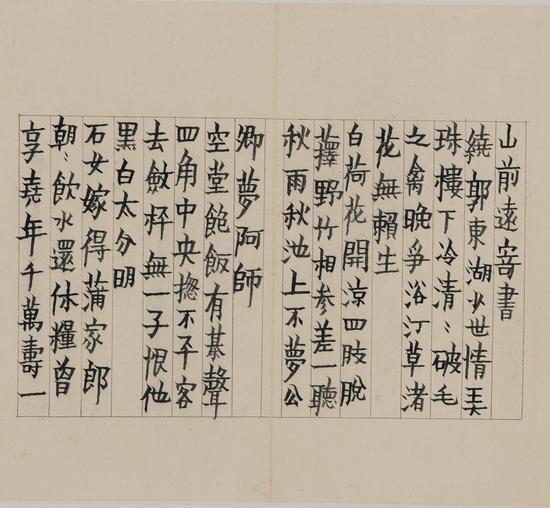 山前遠寄書
繞郭東湖少世情美
珠樓下冷清〻破毛
之禽晚爭浴汀草渚
花無賴生
白荷花開涼四肢脫
蘀野竹相参差一聽
秋雨秋池上不夢公
卿夢阿師
空堂飽飯有棊聲
四角中央揔不平客
去斂枰無一子恨他
黑白太分明
石女嫁得蒲家郎
朝〻飲水還休糧曾
享堯年千萬壽一